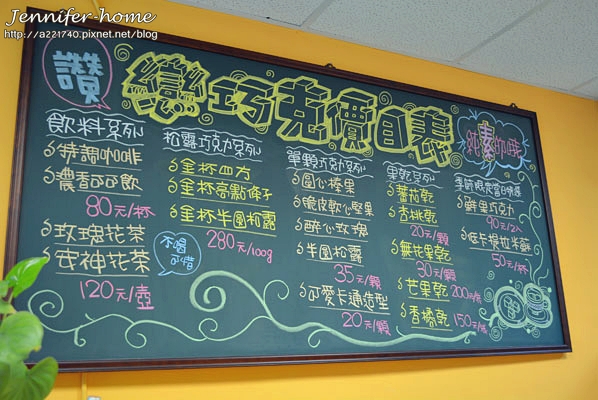 Jennifer-home
http://a221740.pixnet.net/blog
讚
戀巧克價目表
純素的哦
飲料系列
特調咖啡
濃香可可飲
80元/杯
玫瑰花茶
女神花茶
120元/壺
不喝可惜
松露巧克力系列
金杯四方
金杯高點條子
金杯半圓松露
280元/100g
單顆巧克力系列
圓心榛果
脆皮軟心堅果
醉心玫瑰
半圓松露
35元/顆
可愛卡通造型
20元/顆
果乾系列
蕃茄乾
杏桃乾
20元/顆
無花果乾
30元/顆
芒果乾 200元/
香橘乾 150元/
鮮果巧克力
90元/2入
低卡提拉米蘇
50元/杯